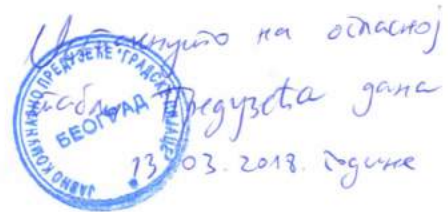 Истакнуто на огласној
табли Предузећа дана
13.03.2018. године
ЈАВНО КОМУНАЛНО ПРЕДУЗЕЋЕ "ГРАДСКЕ ПИЈАЦЕ"
БЕОГРАД